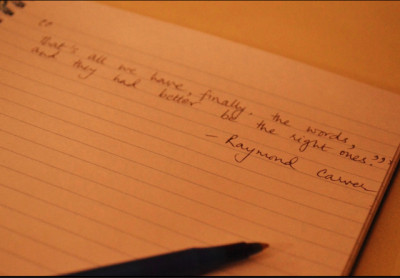 "
That's all we have, finally, the words,
and they had better be the right ones."
- Raymond Carver